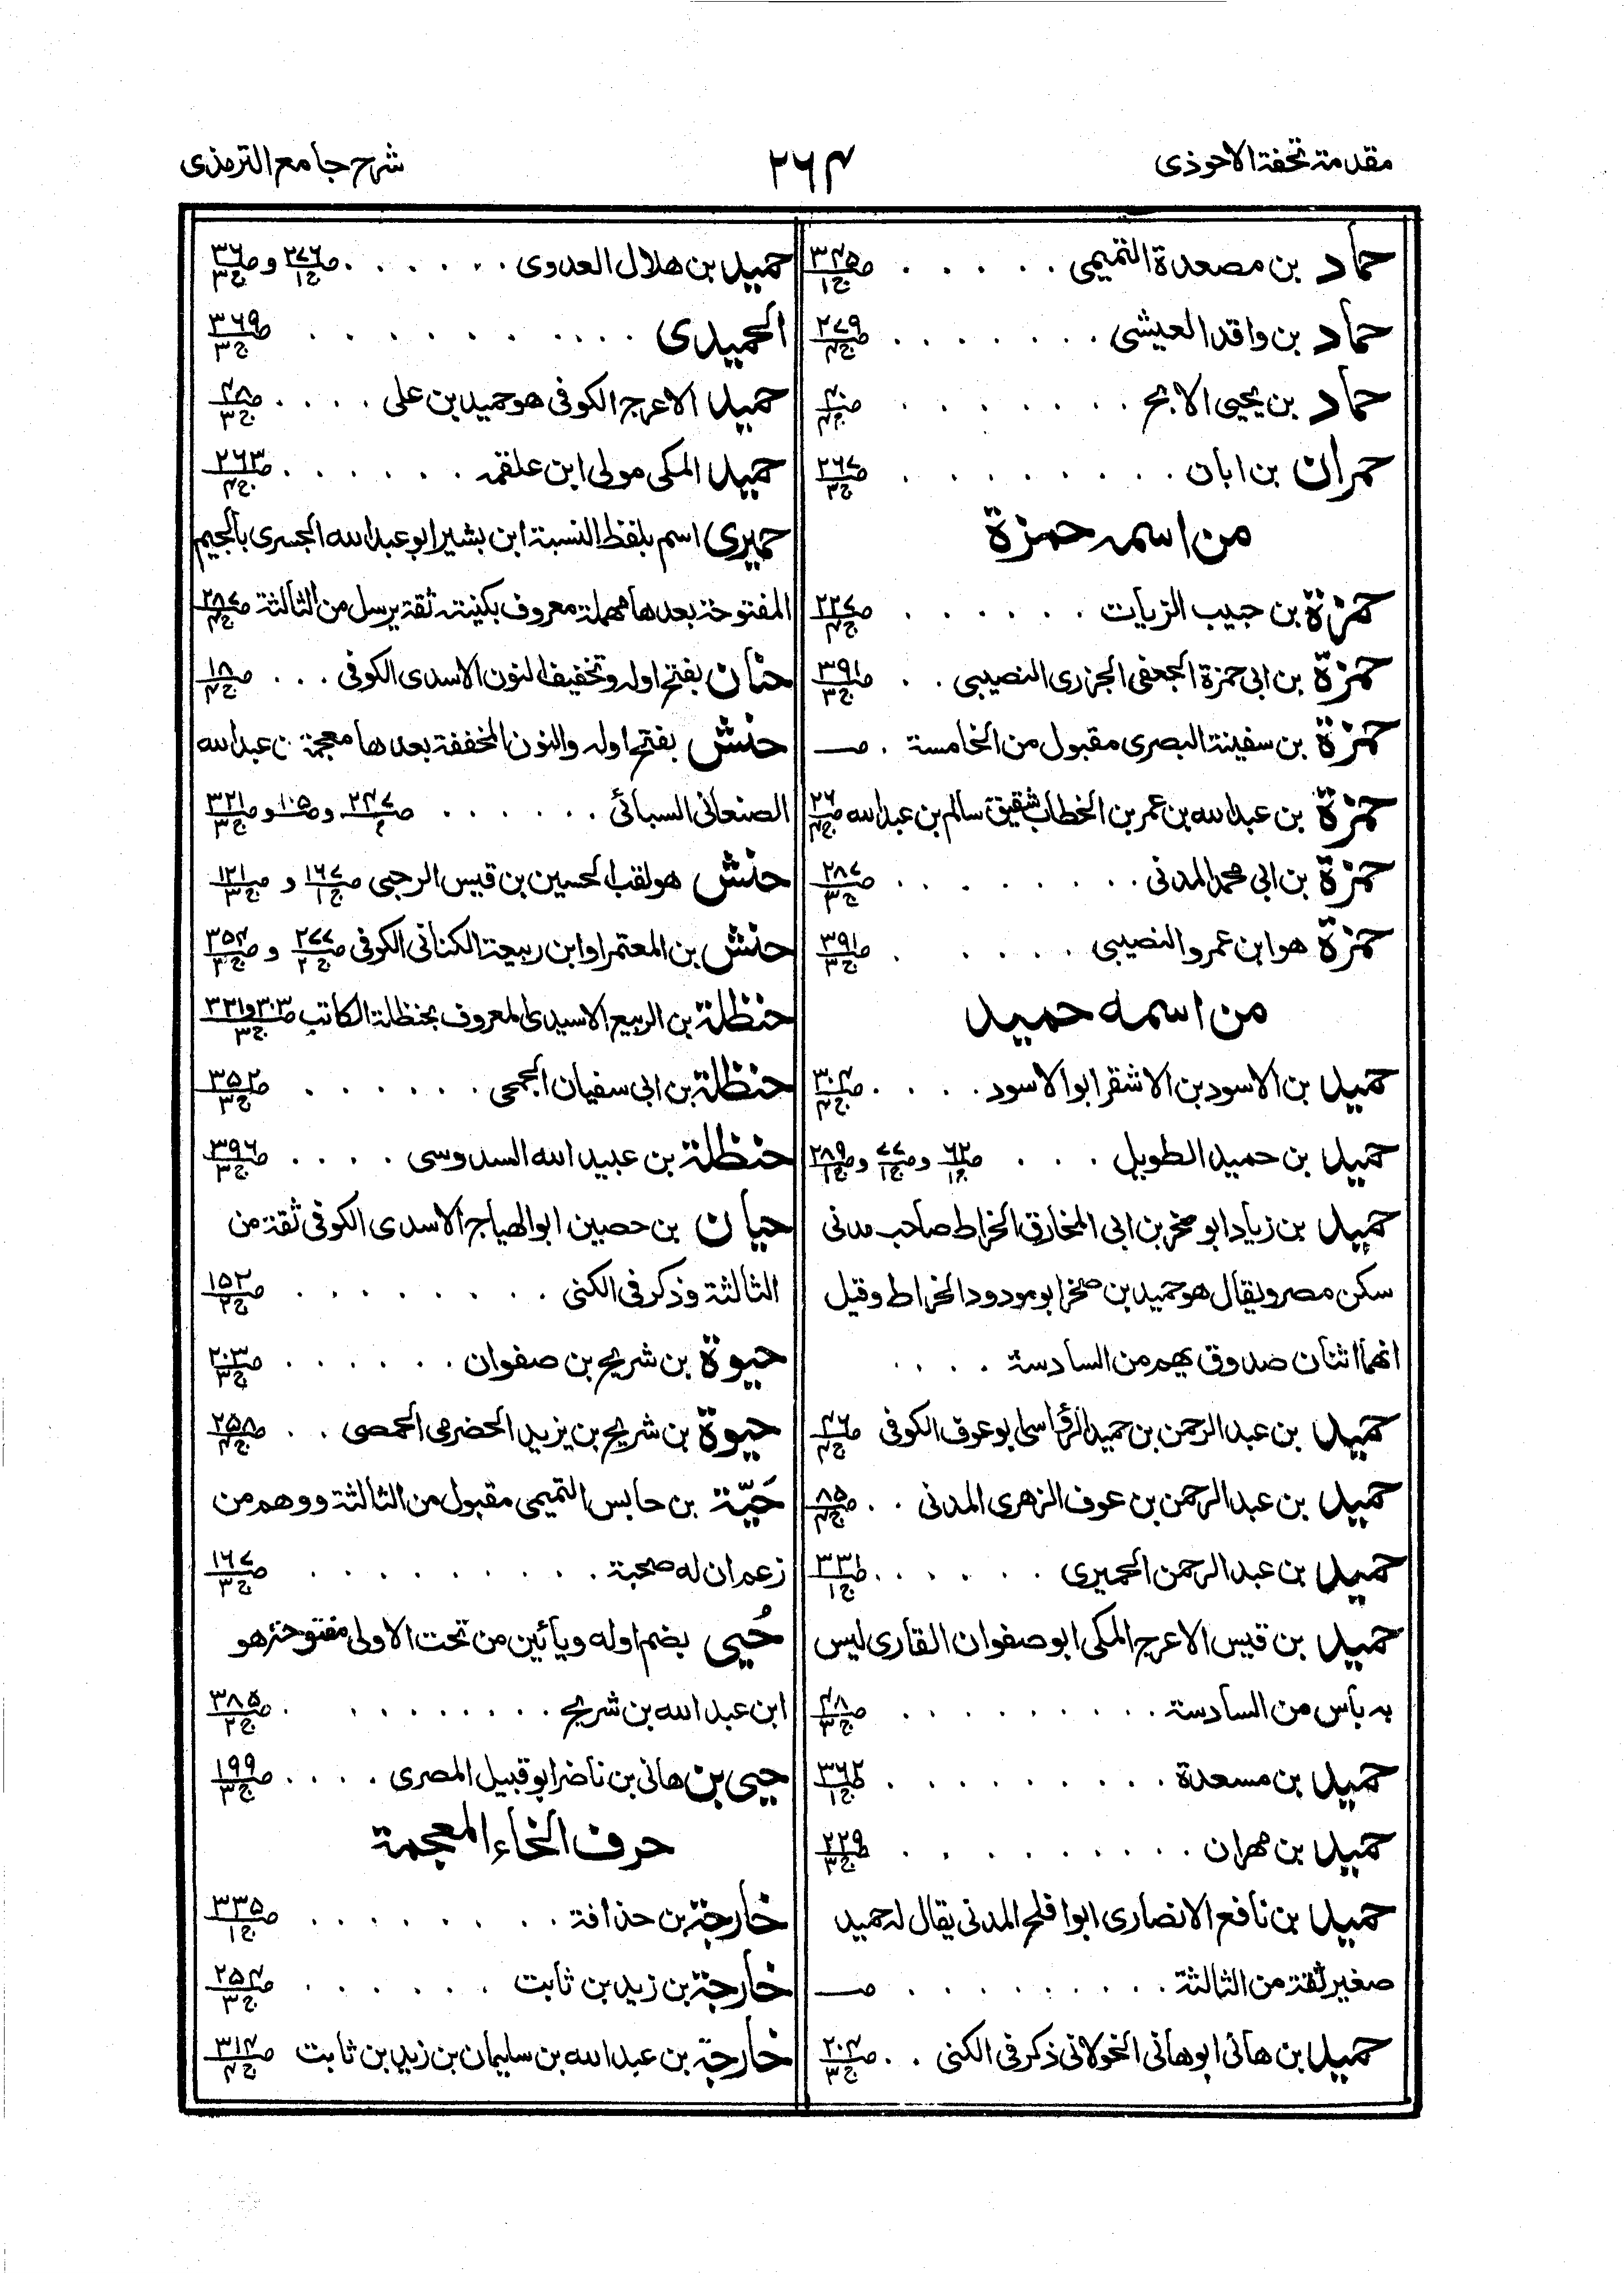 مقدمة تحفة الاحوذى
۲۶۴
شرح جامع الترمذى
حماد بن مصعدة التميمى . . . . . ص۳۴۵ ج۱
حماد بن واقد العيشى . . . . . . . ص۲۷۹ ج۴
حماد بن يحيى الابح . . . . . . . ص۴۰ ج۴
حمران بن ابان . . . . . . . . . ص۲۶۷ ج۳
من اسمه حمزة
حمزة بن حبيب الزيات . . . . . . ص۲۲۷ ج۴
حمزة بن ابى حمزة الجعفى الجزرى النصيبى . . ص۳۹۱ ج۳
حمزة بن سفينة البصرى مقبول من الخامسة . صـ
حمزة بن عبدالله بن عمر بن الخطاب شقيق سالم بن عبدالله ص۲۶ ج۴
حمزة بن ابى محمد المدنى . . . . . . . . . ص۲۸۷ ج۳
حمزة هو ابن عمرو النصيبى . . . . . ص۳۹۱ ج۳
من اسمه حميد
حميد بن الاسود بن الاشقر ابو الاسود . . . . . ص۳۰۴ ج۴
حميد بن حميد الطويل . . . . ص۶۲ ج۱ و ص۷۷ ج۱ و ص۲۸۹ ج۱
حميد بن زياد ابو صخر بن ابى المخارق الخراط صاحب مدنى
سكن مصر ويقال هو حميد بن صخر ابو مودود الخراط وقيل
انهما اثنان صدوق يهم من السادسة . . . .
حميد بن عبد الرحمن بن حميد الرؤاسى ابو عوف الكوفى ص۴۶ ج۴
حميد بن عبد الرحمن بن عوف الزهرى المدنى . . ص۸۵ ج۴
حميد بن عبد الرحمن الحميرى . . . . . . . ص۳۳۱ ج۱
حميد بن قيس الاعرج المكى ابو صفوان القارى ليس
به بأس من السادسة . . . . . . . . . ص۴۸ ج۳
حميد بن مسعدة . . . . . . . . . ص۳۶۲ ج۱
حميد بن مهران . . . . . . . . . ص۲۲۹ ج۳
حميد بن نافع الانصارى ابو افلح المدنى يقال له حميد
صغير ثقة من الثالثة . . . . . . . . . صـ
حميد بن هانى ابو هانى الخولانى ذكر فى الكنى . . ص۲۰۴ ج۳
حميد بن هلال العدوى . . . . . . ص۲۷۶ ج۱ و ص۳۶ ج۳
الحميدى . . . . . . . . . . . ص۳۶۹ ج۳
حميد الاعرج الكوفى هو حميد بن على . . . . ص۴۸ ج۳
حميد المكى مولى ابن علقمه . . . . . . . ص۲۶۳ ج۴
حميرى اسم بلفظ النسبة ابن بشير ابو عبدالله الجسرى بالجيم
المفتوحة بعدها مهملة معروف بكنيته ثقة يرسل من الثالثة ص۲۸۷ ج۴
حنان بفتح اوله وتخفيف النون الاسدى الكوفى . . . ص۱۸ ج۴
حنش بفتح اوله والنون المخففة بعدها معجمة بن عبدالله
الصنعانى السبائى . . . . . . ص۲۴۷ ۲ و ص۱۰۵ و ص۳۲۱ ج۳
حنش هو لقب الحسين بن قيس الرحبى ص۱۶۷ ج۱ و ص۱۲۱ ج۳
حنش بن المعتمر او ابن ربيعة الكنانى الكوفى ص۲۷۷ ج۲ و ص۳۵۴ ج۳
حنظلة بن الربيع الاسيدى المعروف بحنظلة الكاتب ص۳۰۳ و ۳۳۱ ج۳
حنظلة بن ابى سفيان الجمحى . . . . . . ص۳۵۲ ج۳
حنظلة بن عبيد الله السدوسى . . . . ص۳۹۶ ج۳
حيان بن حصين ابو الهياج الاسدى الكوفى ثقة من
الثالثة وذكر فى الكنى . . . . . . . . ص۱۵۲ ج۲
حيوة بن شريح بن صفوان . . . . . . ص۲۰۳ ج۳
حيوة بن شريح بن يزيد الحضرمى الحمصى . . ص۲۵۸ ج۴
حَيّة بن حابس التميمى مقبول من الثالثة ووهم من
زعم ان له صحبة . . . . . . . . . ص۱۶۷ ج۳
حُيى بضم اوله ويائين من تحت الاولى مفتوحة هو
ابن عبد الله بن شريح . . . . . . . . ص۳۸۵ ج۲
حيى بن هانى بن ناضر ابو قبيل المصرى . . . . ص۱۹۹ ج۳
حرف الخاء المعجمة
خارجة بن حذافة . . . . . . . . ص۳۳۵ ج۱
خارجة بن زيد بن ثابت . . . . . . ص۲۵۴ ج۳
خارجة بن عبدالله بن سليمان بن زيد بن ثابت ص۳۱۴ ج۴